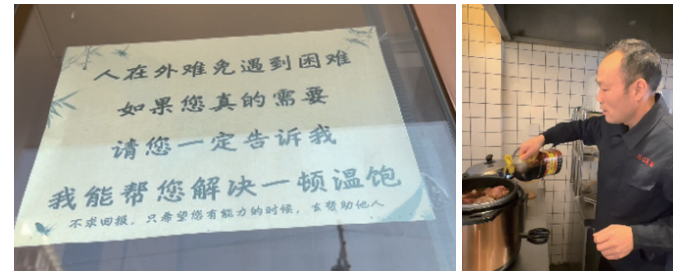 人在外难免遇到困难
如果您真的需要
请您一定告诉我
我能帮您解决一顿温饱
不求回报，只希望您有能力的时候，去赞助他人